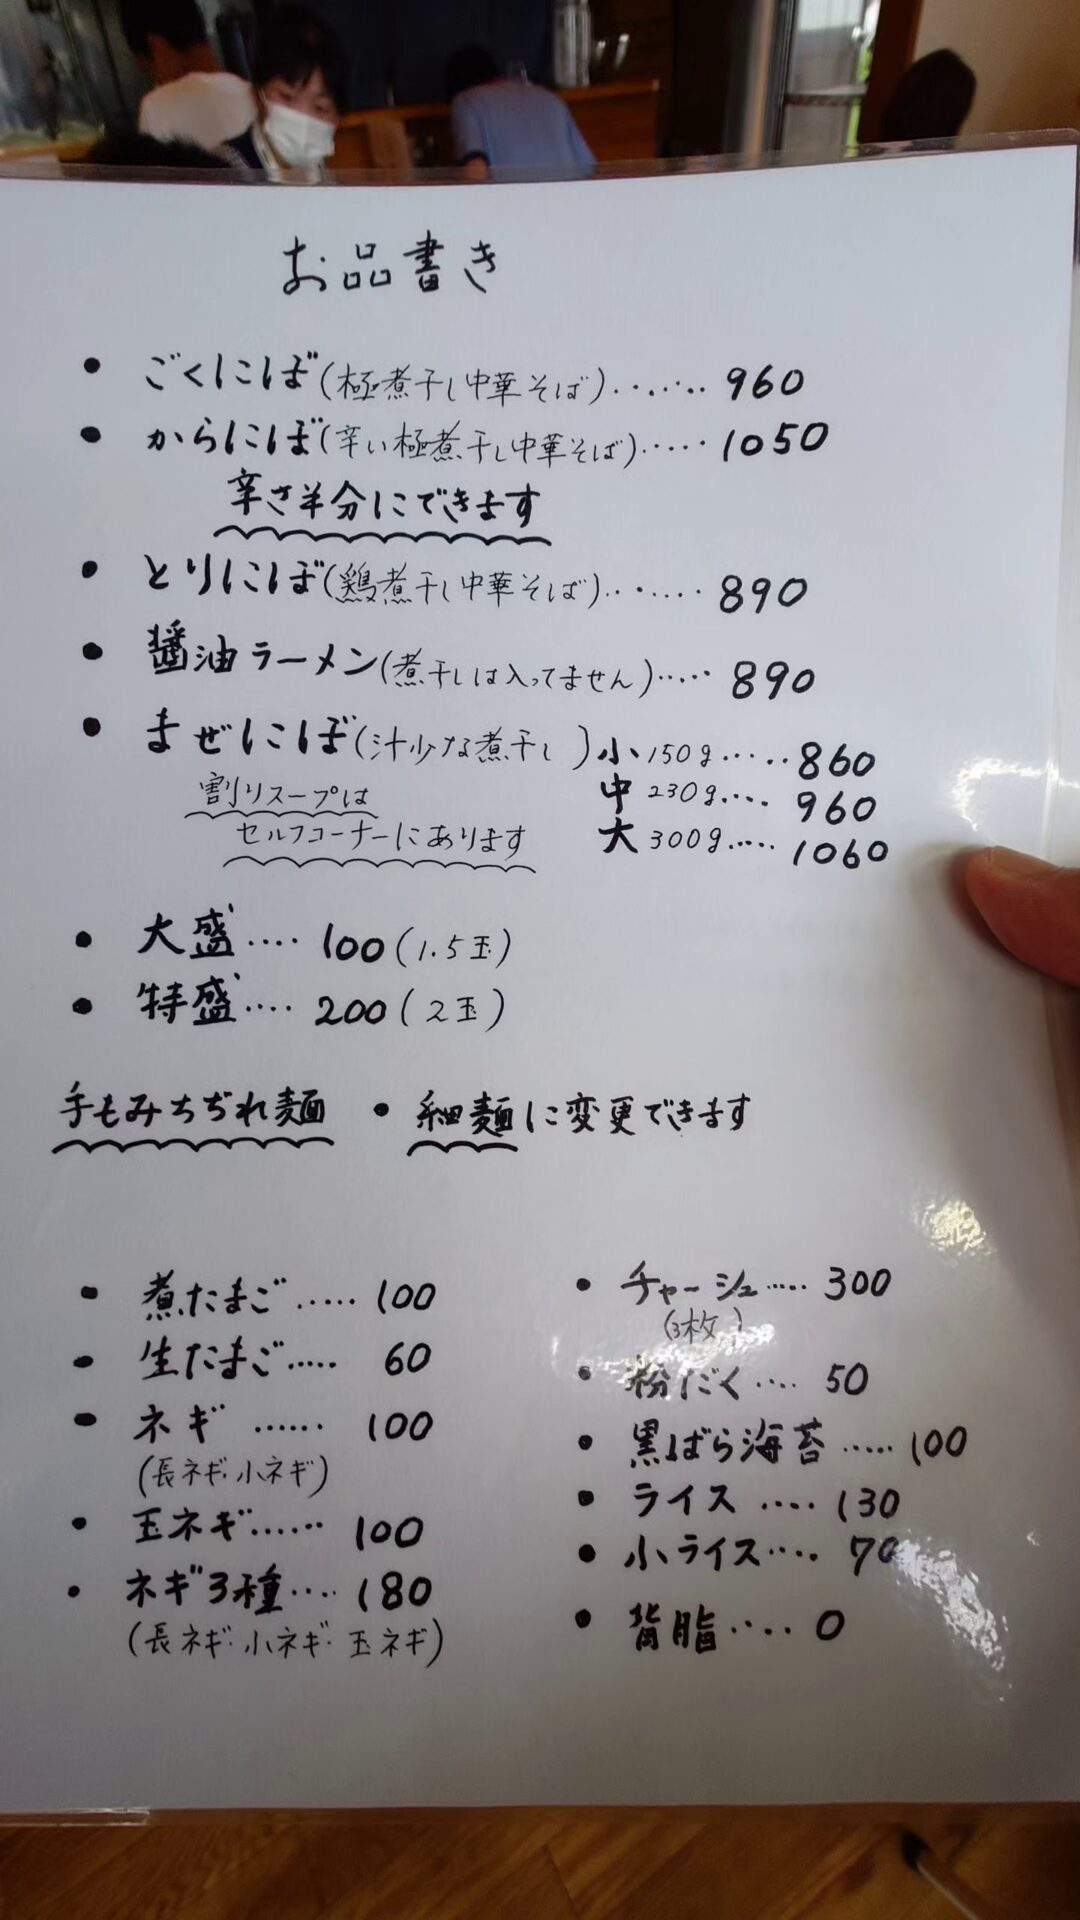 お品書き
・ごくにぼ(極煮干し中華そば)・・・・・・ 960
・からにぼ(辛い極煮干し中華そば)・・・・・ 1050
辛さ半分にできます
・とりにぼ(鶏煮干し中華そば)・・・・・・ 890
・醤油ラーメン(煮干しは入ってません)・・・・・ 890
・まぜにぼ(汁少な煮干し)小 150g・・・・・ 860
割りスープは 中 230g・・・・ 960
セルフコーナーにあります 大 300g・・・・・ 1060
・大盛・・・・ 100(1.5玉)
・特盛・・・・ 200(2玉)
手もみちぢれ麺・細麺に変更できます
・煮たまご・・・・・ 100
・生たまご・・・・・ 60
・ネギ ・・・・・・ 100
(長ネギ・小ネギ)
・玉ネギ・・・・・・ 100
・ネギ3種・・・・ 180
(長ネギ・小ネギ・玉ネギ)
・チャーシュ・・・・・ 300
(3枚)
・粉にく・・・・ 50
・黒ばら海苔・・・・・ 100
・ライス・・・・・ 130
・小ライス・・・・ 70
・背脂・・・・ 0